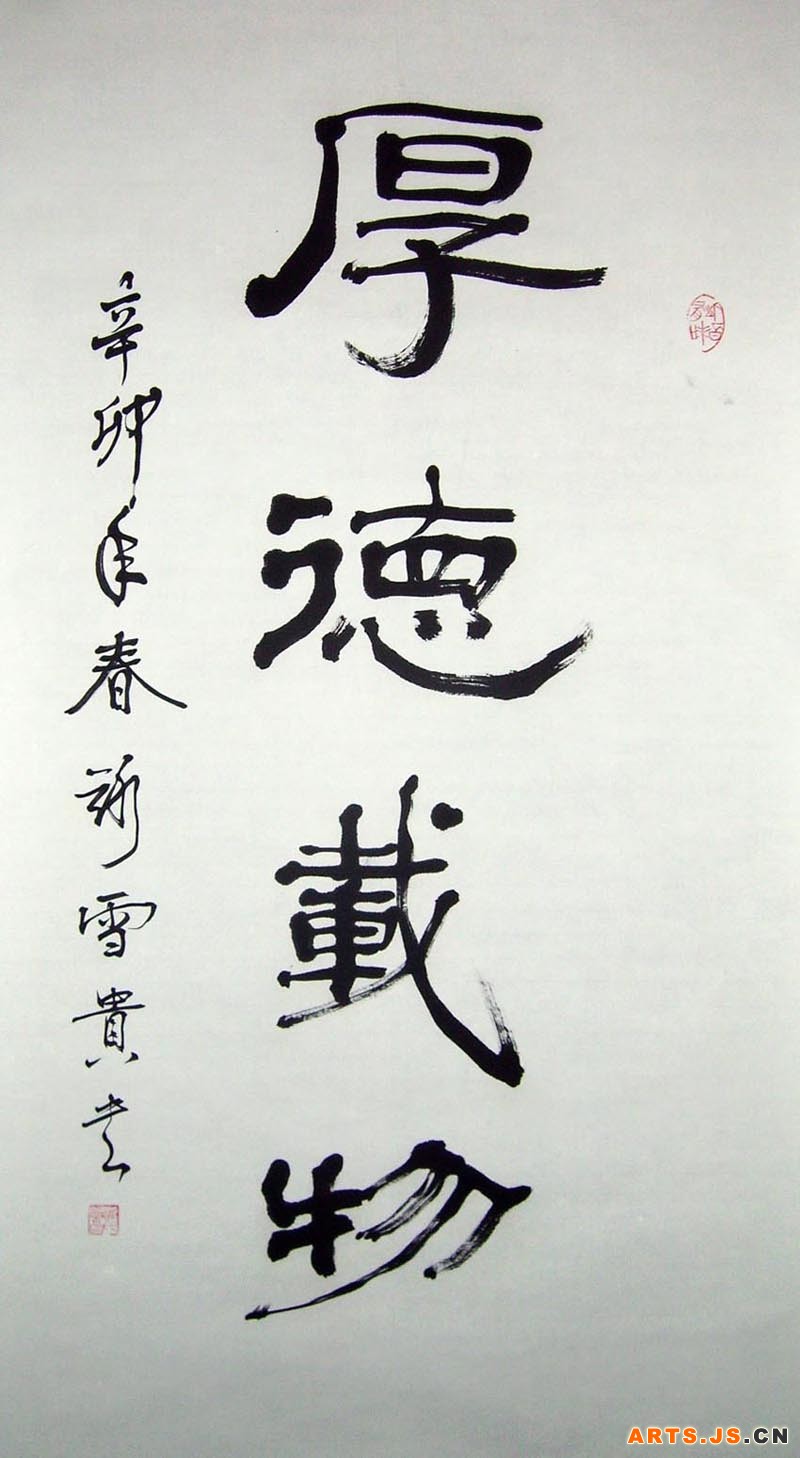 厚德載物
辛卯年春 雪貴书
ARTS.JS.CN